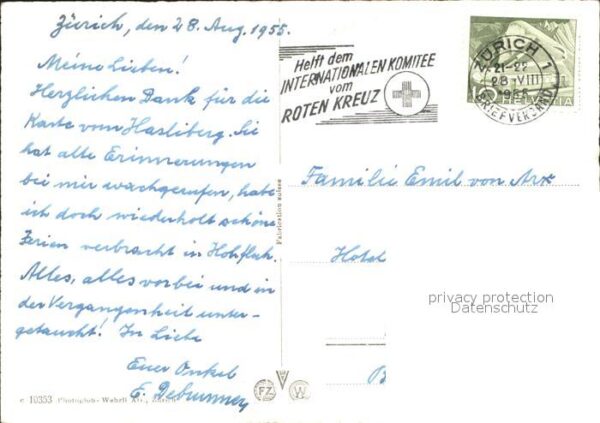 Zürich, den 28. Aug. 1955.
Meine Lieben!
Herzlichen Dank für die
Karte vom Hasliberg. Sie
hat alte Erinnerungen
bei mir wachgerufen, habe
ich doch wiederholt schöne
Ferien verbracht in Hohfluh.
Alles, alles vorbei und in
der Vergangenheit unter-
getaucht! In Liebe
Euer Onkel
E. Debrunner
c 10353 Photoglob-Wehrli A.G., Zürich
Fabrication suisse
FZ W
Helft dem
INTERNATIONALEN KOMITEE
vom
ROTEN KREUZ
ZÜRICH 1
28 VIII
1955
BRIEFVERSAND
10 HELVETIA
Familie Emil von Arx
Hotel
B
privacy protection
Datenschutz